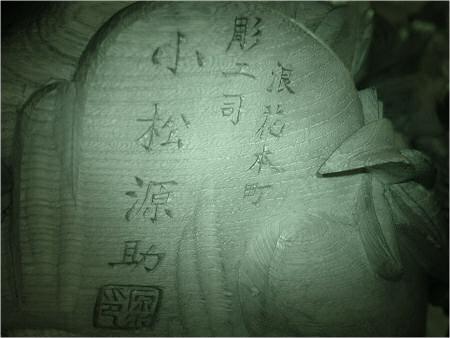 浪花本町
彫工司
小松源助